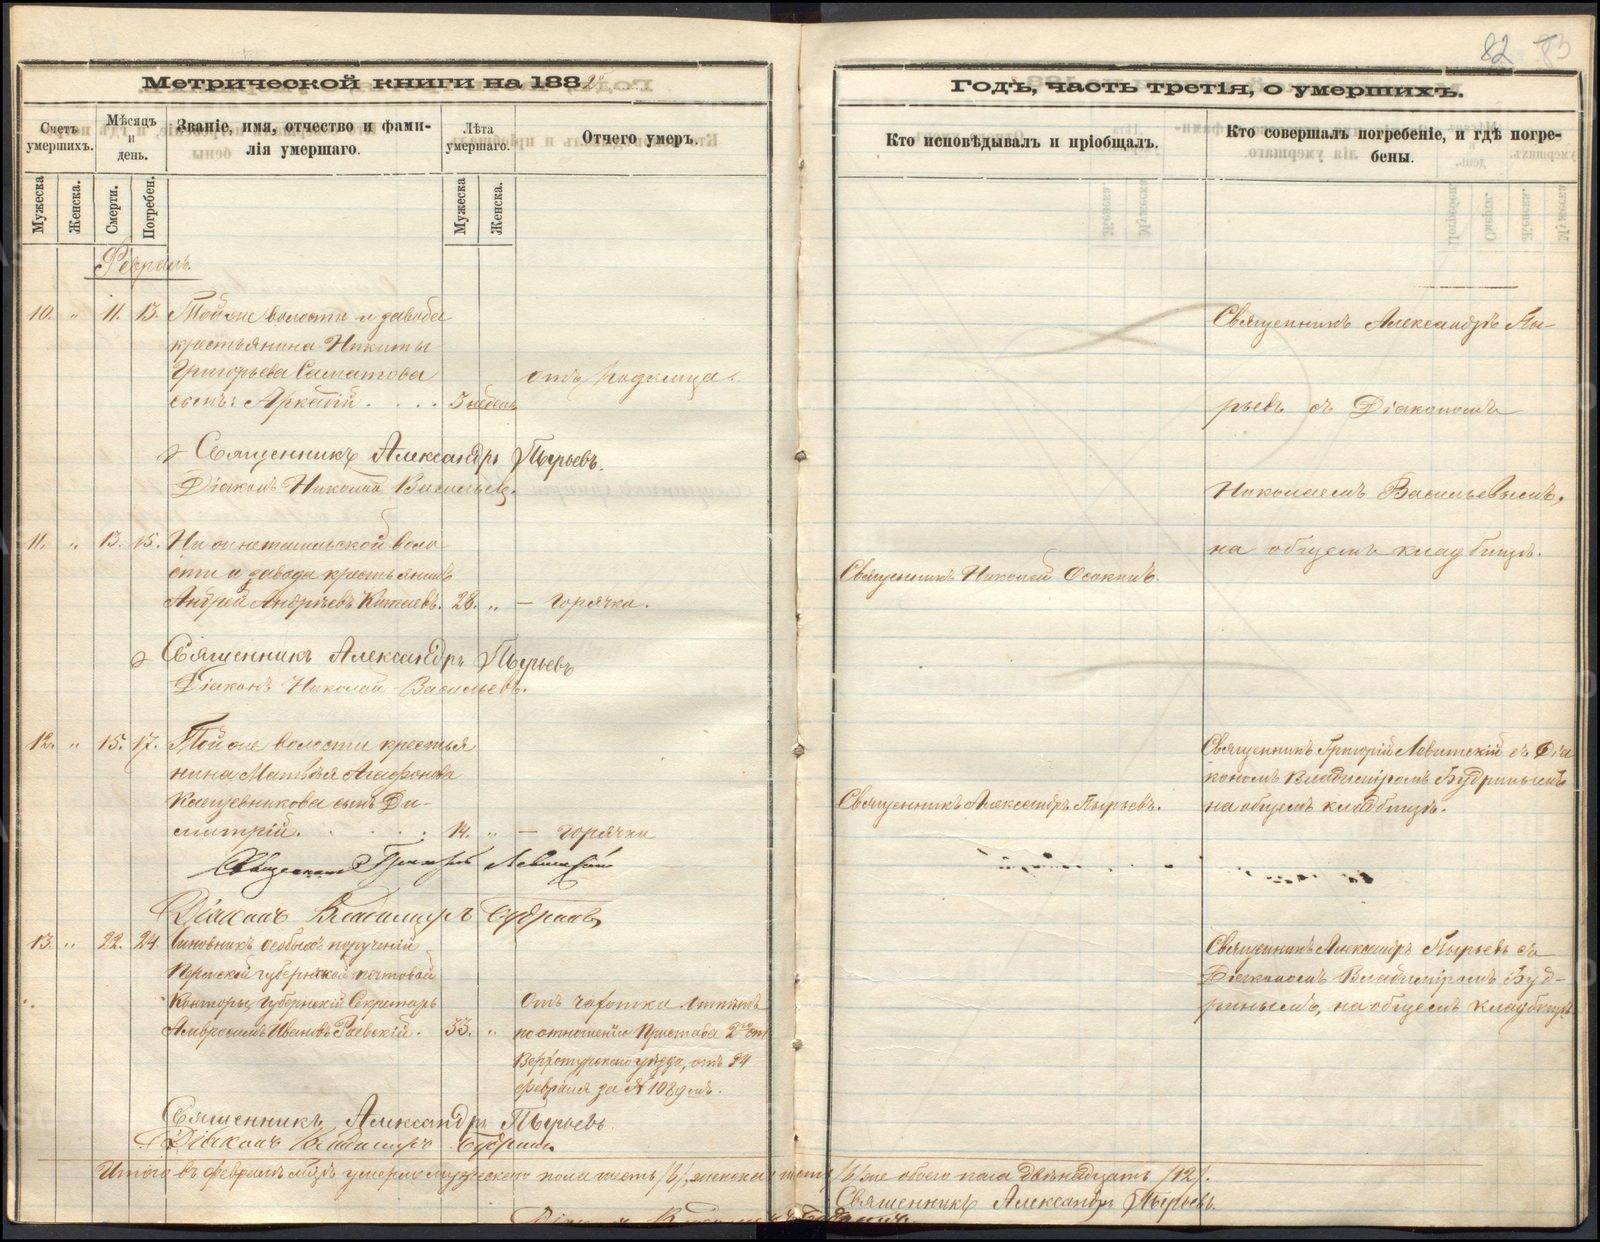 82 83
Метрической книги на 1882й
Счетъ умершихъ.
Мѣсяцъ и день.
Званіе, имя, отчество и фами-
лія умершаго.
Лѣта умершаго.
Отчего умеръ.
Мужеска
Женска.
Смерти.
Погребен.
Мужеска
Женска.
Февраль.
10. „ 11. 13. Той же волости и завода
крестьянина Никиты
Григорьева Саматова
сынъ: Аркадій . . . . 5 недѣль отъ родимца.
Священникъ Александръ Пырьевъ.
Діаконъ Николай Васильевъ.
11. „ 13. 15. Нижнетагильской воло-
сти и завода крестьянинъ
Андрей Андреевъ Китаевъ. 28. „ — горячка.
Священникъ Александръ Пырьевъ
Діаконъ Николай Васильевъ.
12. „ 15. 17. Той же волости крестья
нина Матвѣя Агафонова
сынъ Ди-
митрій. . . . . 14. „ — горячки
Священникъ Григорій Левитскій
Діаконъ Владимиръ Будринъ
13. „ 22. 24. Чиновникъ особыхъ порученій
Пермской губернской почтовой
Конторы, Губернскій Секретарь
Амвросимъ Ивановъ Раевскій. 33. „ Отъ чахотки
по отношенію Пристава 2го ст.
Верхотурскаго уѣзда, отъ 24
февраля за № 1089мъ.
Священникъ Александръ Пырьевъ.
Діаконъ Владимиръ Будринъ
Итого въ февралѣ м-цѣ умерло мужескаго пола шесть /6/, женска шесть /6/ же обоего пола двѣнадцать /12/.
Священникъ Александръ Пырьевъ.
Діаконъ Владимиръ Будринъ.
Годъ, часть третія, о умершихъ.
Кто исповѣдывалъ и пріобщалъ.
Кто совершалъ погребеніе, и гдѣ погре-
бены.
Священникъ Александръ Пы-
рьевъ съ Діакономъ
Николаемъ Васильевымъ,
на общемъ кладбищѣ.
Священникъ Николай Осокинъ.
Священникъ Григорій Левитскій съ Діа
кономъ Владиміромъ Будринымъ
Священникъ Александръ Пырьевъ.
на общемъ кладбищѣ.
Священникъ Александръ Пырьевъ съ
Діакономъ Владиміромъ Буд-
ринымъ, на общемъ кладбищѣ